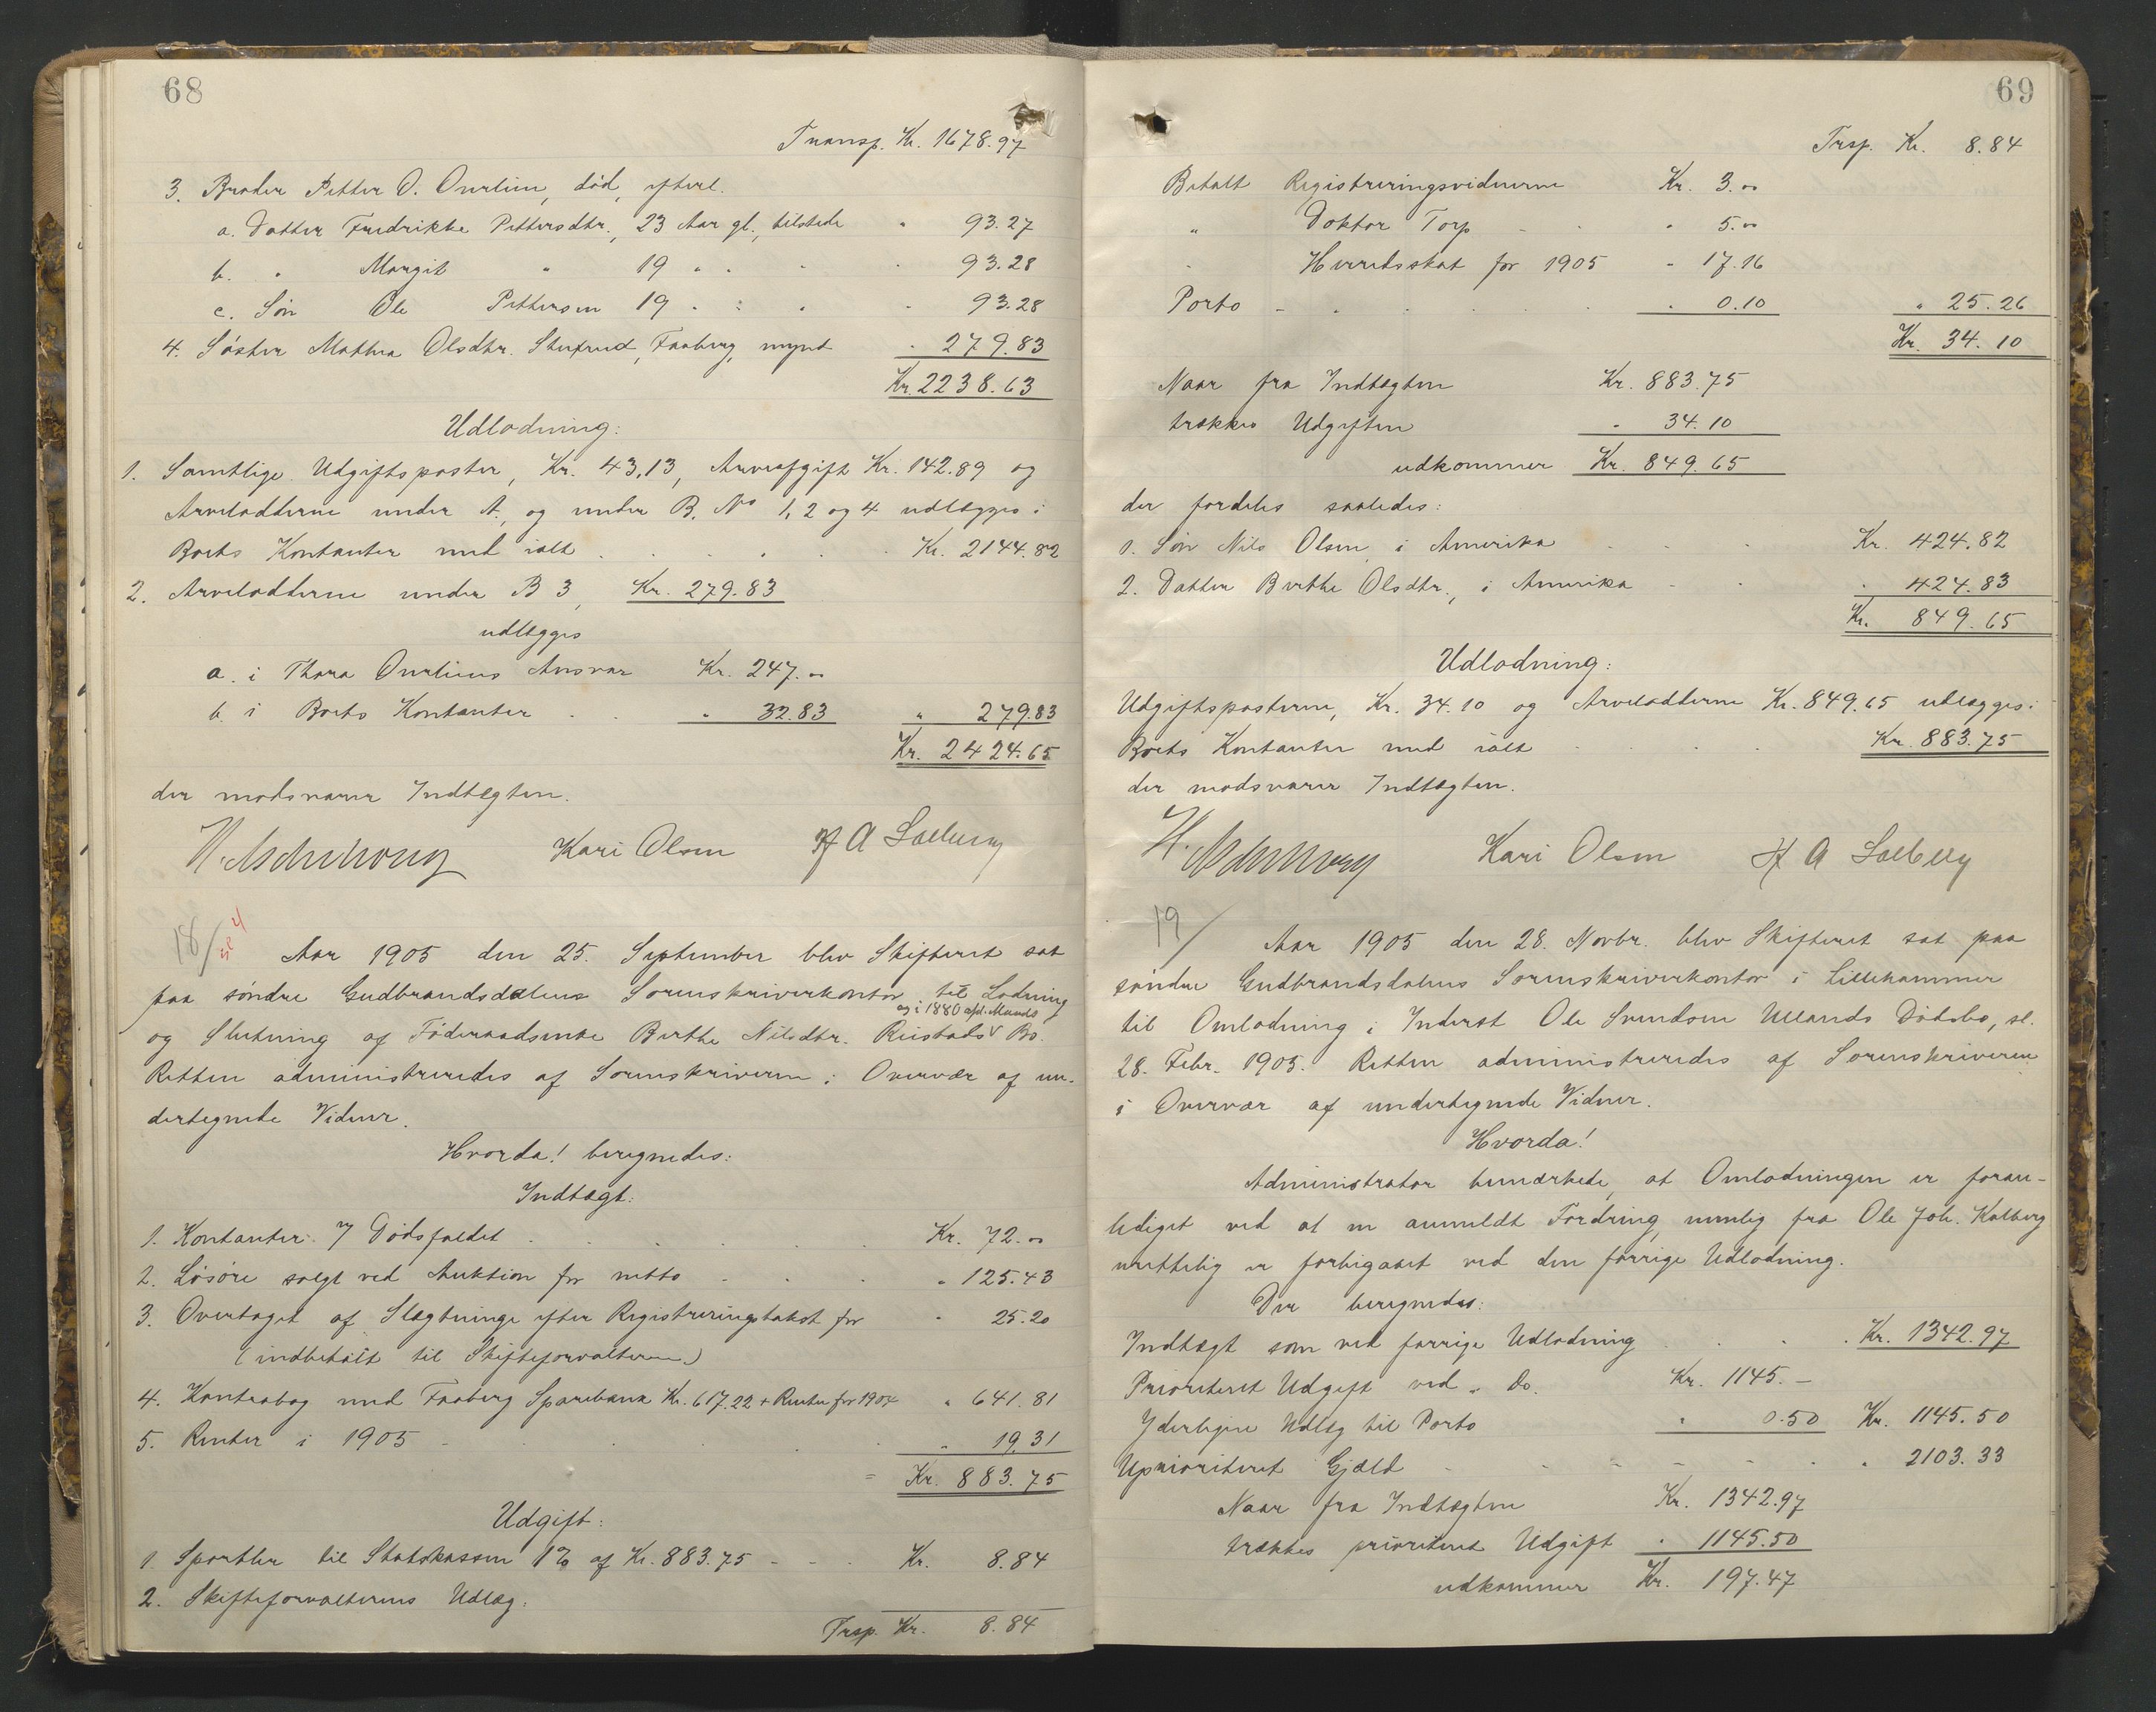 68
Transp. Kr. 1678.97
3. Broder Petter O. Overlien, død, efterl.
a. Datter Fredrikke Pettersdtr., 23 Aar gl., tilstede " 93.27
b. " Margit " 19 " " " " 93.28
c. Søn Ole Pettersen 19 " " " " 93.28
4. Søster Mathea Olsdtr. Stufrud, Faaberg, mynd " 279.83
Kr. 2238.63
Udlodning:
1. Samtlige Udgiftsposter, Kr. 43.13, Arveafgift Kr. 142.89 og
Arvelodderne under A., og under B. No 1, 2 og 4 udlægges i
Boets Kontanter med ialt Kr. 2144.82
2. Arvelodderne under B 3, Kr. 279.83
udlægges
a. i Thora Overliens Ansvar Kr. 247.00
b. i Boets Kontanter " 32.83 " 279.83
Kr. 2424.65
der modsvarer Indtægten.
Kari Olsen H A Solberg
18/ Aar 1905 den 25. September blev Skifteret sat
paa søndre Gudbrandsdalens Sorenskriverkontor til Lodning
og i 1880 afd. Mands
og Slutning af Føderaadsenke Berthe Nilsdtr. Reistads Bo.
Retten administreredes af Sorenskriveren i Overvær af un-
dertegnede Vidner.
Hvorda! beregnedes:
Indtægt:
1. Kontanter v/ Dødsfaldet Kr. 72.00
2. Løsøre solgt ved Auktion for netto " 125.43
3. Overtaget af Slægtninge efter Registreringstakst for " 25.20
(indbetalt til Skifteforvalteren)
4. Kontrabog med Faaberg Sparebank Kr. 617.22 + Renter for 1904 " 641.81
5. Renter i 1905 " 19.31
= Kr. 883.75
Udgift:
1. Sportler til Statskassen 1% af Kr. 883.75 Kr. 8.84
2. Skifteforvalterens Udlæg:
Trsp. Kr. 8.84
69
Trsp. Kr. 8.84
Betalt Registreringsvidnerne Kr. 3.00
" Doktor Torp " 5.00
" Herredsskat for 1905 " 17.16
Porto " 0.10 " 25.26
Kr. 34.10
Naar fra Indtægten Kr. 883.75
trækkes Udgiften " 34.10
udkommer Kr. 849.65
der fordeles saaledes:
1. Søn Nils Olsen, i Amerika Kr. 424.82
2. Datter Berthe Olsdtr., i Amerika " 424.83
Kr. 849.65
Udlodning:
Udgiftsposterne, Kr. 34.10 og Arvelodderne Kr. 849.65 udlægges i
Boets Kontanter med ialt Kr. 883.75
der modsvarer Indtægten.
Kari Olsen H A Solberg
19/ Aar 1905 den 28. Novbr. blev Skifteret sat paa
søndre Gudbrandsdalens Sorenskriverkontor i Lillehammer
til Omlodning i Inderst Ole Svendsen Ullands Dødsbo, sl.
28. Febr. 1905. Retten administreredes af Sorenskriveren
i Overvær af undertegnede Vidner.
Hvorda!
Administrator bemærkede, at Omlodningen er foran-
lediget ved at en anmeldt Fordring, nemlig fra Ole Joh. Kalberg
urettelig er forbigaaet ved den forrige Udlodning.
Der beregnedes:
Indtægt som ved forrige Udlodning Kr. 1342.97
Prioriteret Udgift ved " Do. Kr. 1145.—
Yderligere Udlæg til Porto " 0.50 Kr. 1145.50
Uprioriteret Gjæld " 2103.33
Naar fra Indtægten Kr. 1342.97
trækkes prioriteret Udgift " 1145.50
udkommer Kr. 197.47